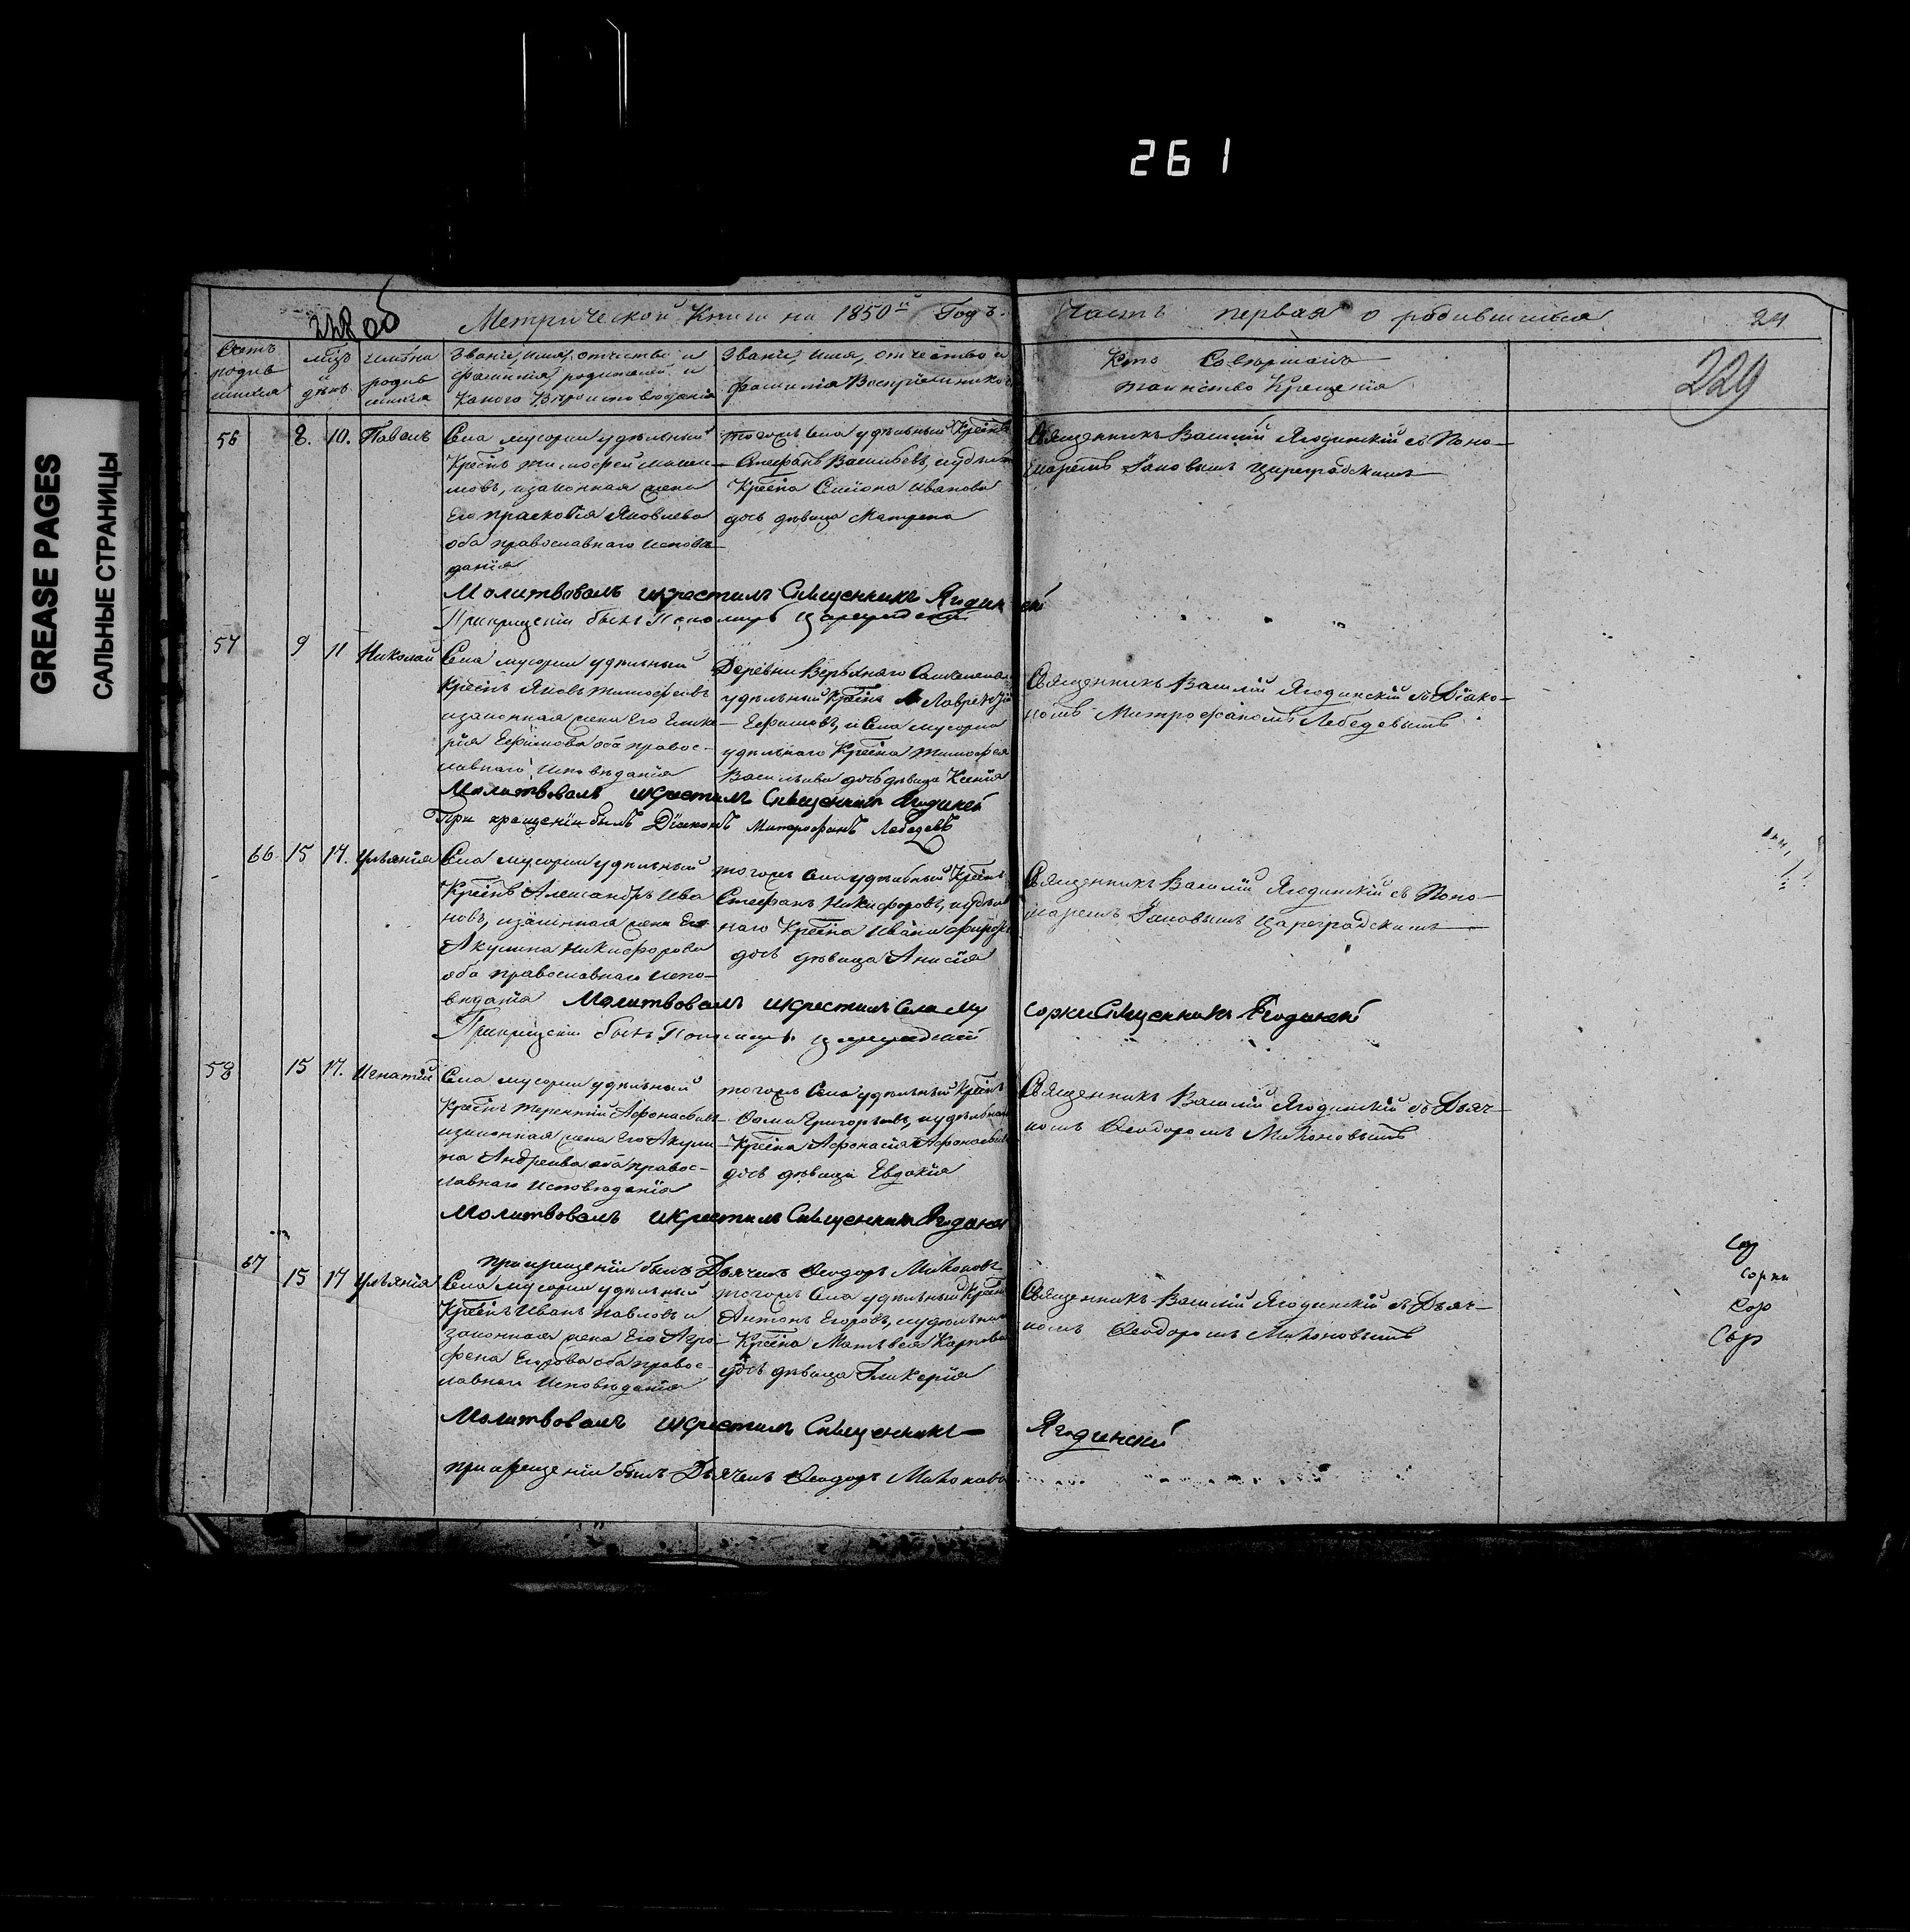 261
GREASE PAGES
САЛЬНЫЕ СТРАНИЦЫ
228 об
Метрической Книги на 1850й Годъ.
Часть первая о родившихся
229
Счетъ родив шихся
мѣц и день
имѣна родив шихся
Званіе, имя, отчество и
фамилія, родителей и
Какого Вѣроисповѣданія
Званіе, имя, отчество и
фамилія Воспріемниковъ
Кто Совершалъ
таинство Крещенія
56 8. 10. Павелъ
Села мусорки удѣльный
Крестн Тимофей
мовъ, изаконная жена
Его Прасковія Яковлева
оба православнаго исповѣ
данія
тогожъ Села удѣльный Крестн
Стефанъ Васильевъ, иудѣльн
Крестна Симіона Иванова
дочь дѣвица Матрена
Священникъ Василій Ягодинскій съ Поно-
маремъ Іаковымъ Цареградскимъ
Молитвовалъ икрестилъ Священникъ Ягодинскій
Прикрещеніи былъ Пономарь Цареградскій
57 9 11 Николай
Села мусорки удѣльный
Крестн Яковъ Тимофеевъ
изаконная жена Его Глике
рія Ефимова оба правос-
лавнаго Исповѣданія
Деревни
удѣльный Крестн Лаврентій
Ефимовъ, и Села мусорки
удѣльнаго Крестна Тимофея
Васильева дочь дѣвица Ксенія
Священникъ Василій Ягодинскій съ Діако-
номъ Митрофаномъ Лебедевымъ
Молитвовалъ икрестилъ Священникъ Ягодинскій
При крещеніи былъ Діаконъ Митрофанъ Лебедевъ
66 15 17. Ульянія
Села мусорки удѣльный
Крестнъ Александръ Ива
новъ, изаконная жена Его
Акулина Никифорова
оба православнаго испо-
вѣданія
тогожъ Села удѣльный Крестн
Стефанъ Никифоровъ, иудѣль
наго Крестна Ивана
дочь дѣвица Анисія
Священникъ Василій Ягодинскій съ Поно-
маремъ Іаковымъ Цареградскимъ
Молитвовалъ икрестилъ Села Му
сорки Священникъ Ягодинскій
Прикрещеніи былъ Пономарь Цареградскій
58 15 17. Игнатій
Села мусорки удѣльный
Крестнъ Терентій Афонасьевъ
изаконная жена Его Акули
на Андреева оба правос-
лавнаго Исповѣданія
тогожъ Села удѣльный Крестнъ
Фома Григорьевъ, иудѣльнаго
Крестна Афонасія Афонасьева
дочь дѣвица Евдокія
Священникъ Василій Ягодинскій съ Дьяч-
комъ Ѳеодоромъ Михоновымъ
Молитвовалъ икрестилъ Священникъ Ягодинскій
прикрещеніи былъ Дьячекъ Ѳеодоръ Михоновъ
67 15 17 Ульянія
Села мусорки удѣльный
Крестнъ Иванъ Павловъ и
законная жена Его Агро
фена Егорова оба правос-
лавнаго Исповѣданія
тогожъ Села удѣльный Крестн
Антонъ Егоровъ, иудѣльнаго
Крестна Матвея Карпова
дочь дѣвица Гликерія
Священникъ Василій Ягодинскій съ Дьяч-
комъ Ѳеодоромъ Михоновымъ
Молитвовалъ икрестилъ Священникъ
Ягодинскій
прикрещеніи былъ Дьячекъ Ѳеодоръ Михоновъ